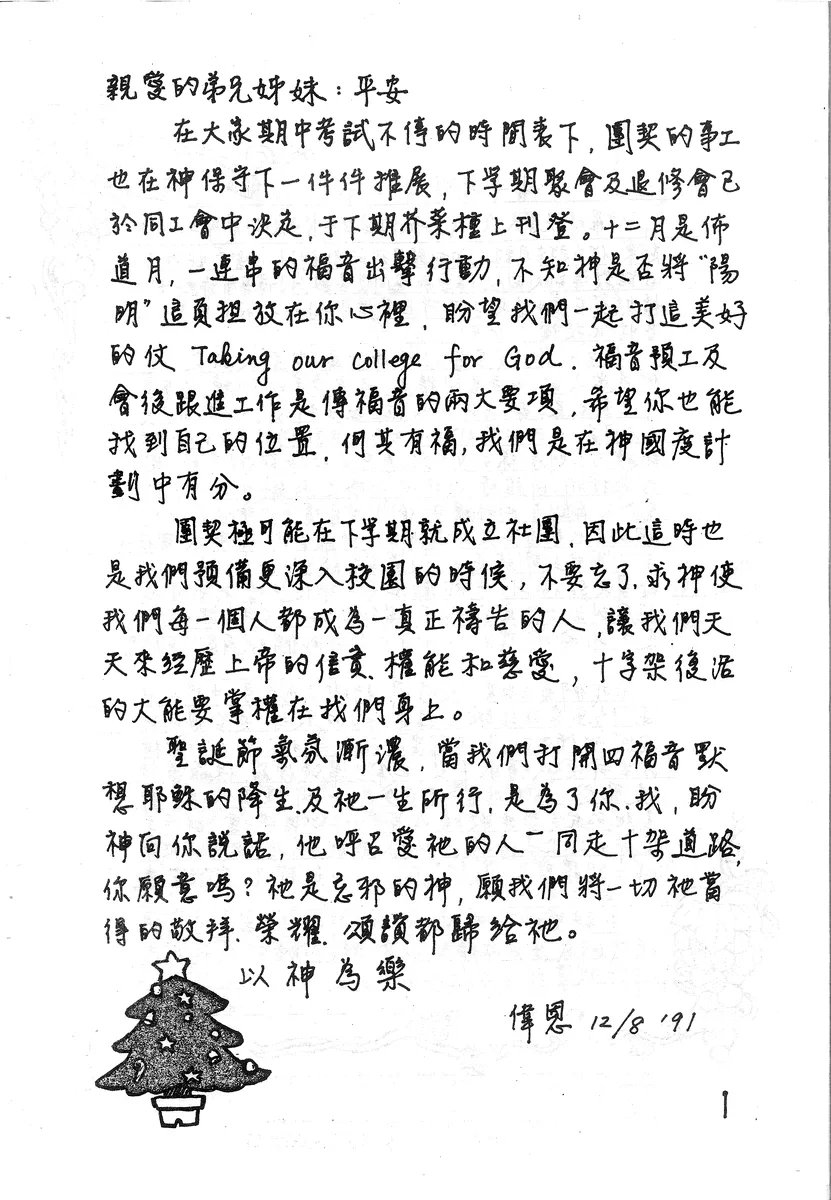 親愛的弟兄姊妹：平安
在大家期中考試不停的時間表下，團契的事工
也在神保守下一件件推展，下學期聚會及退修會已
於同工會中決定，于下期芥菜種上刊登。十二月是佈
道月，一連串的福音出擊行動，不知神是否將“陽
明”這負担放在你心裡，盼望我們一起打這美好
的仗 Taking our college for God. 福音預工及
會後跟進工作是傳福音的兩大要項，希望你也能
找到自己的位置，何其有福，我們是在神國度計
劃中有分。
團契極可能在下學期就成立社團，因此這時也
是我們預備更深入校園的時候，不要忘了，求神使
我們每一個人都成為一真正禱告的人，讓我們天
天來經歷上帝的信實、權能和慈愛，十字架復活
的大能要掌權在我們身上。
聖誕節氣氛漸濃，當我們打開四福音默
想耶穌的降生、及祂一生所行，是為了你、我，盼
神向你說話，他呼召愛祂的人一同走十架道路，
你願意嗎？祂是忌邪的神，願我們將一切祂當
得的敬拜、榮耀、頌讚都歸給祂。
以神為樂
偉恩 12/8 '91
1